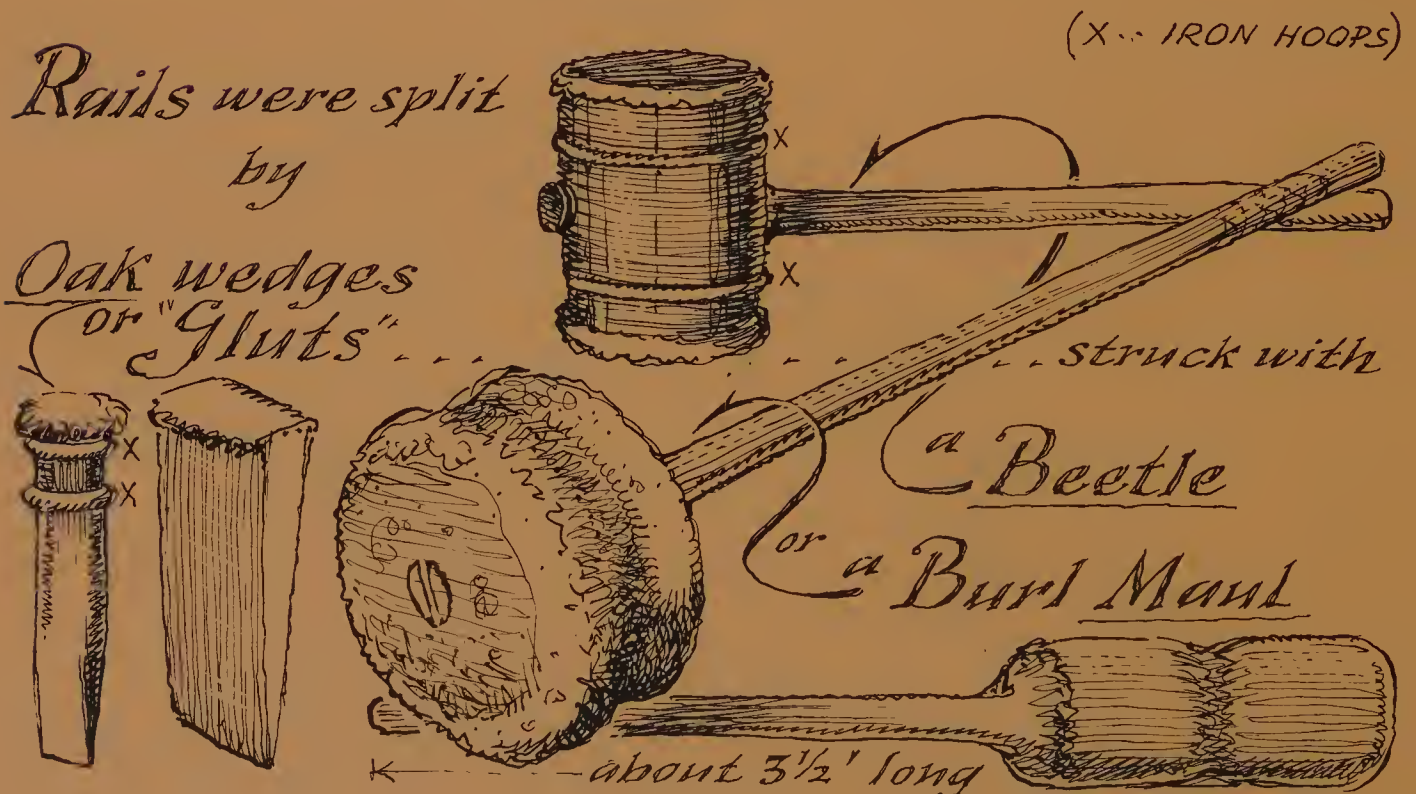 (X·· IRON HOOPS)
Rails were split
by
Oak wedges
or "Gluts" . . . . . . . struck with
X
X
X
X
a Beetle
or a Burl Maul
about 3½' long